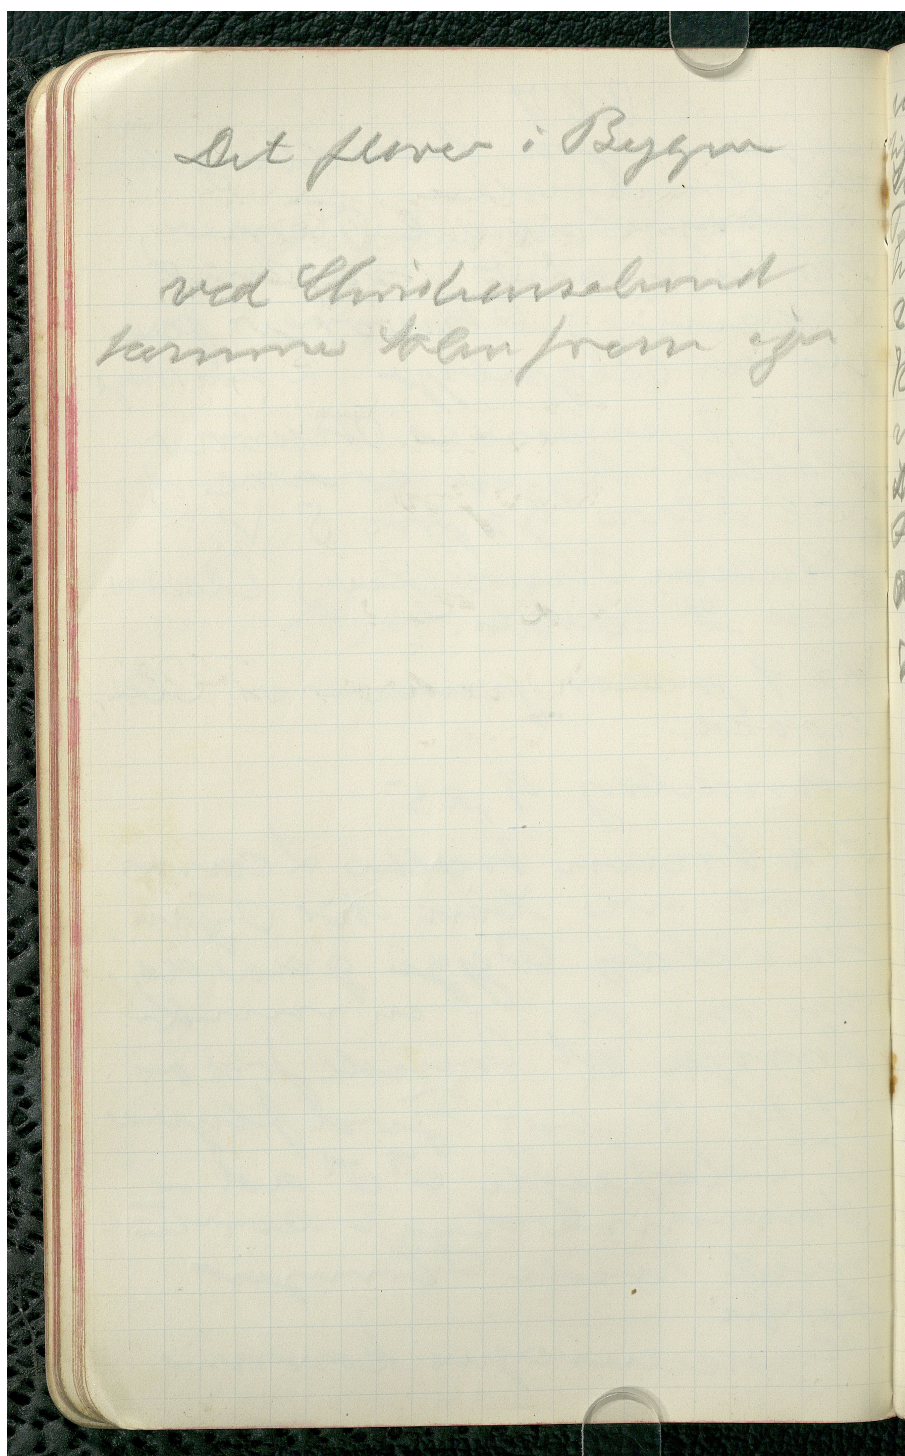 Det flover i Byggen
ved Christianssund
kommer Solen frem igen